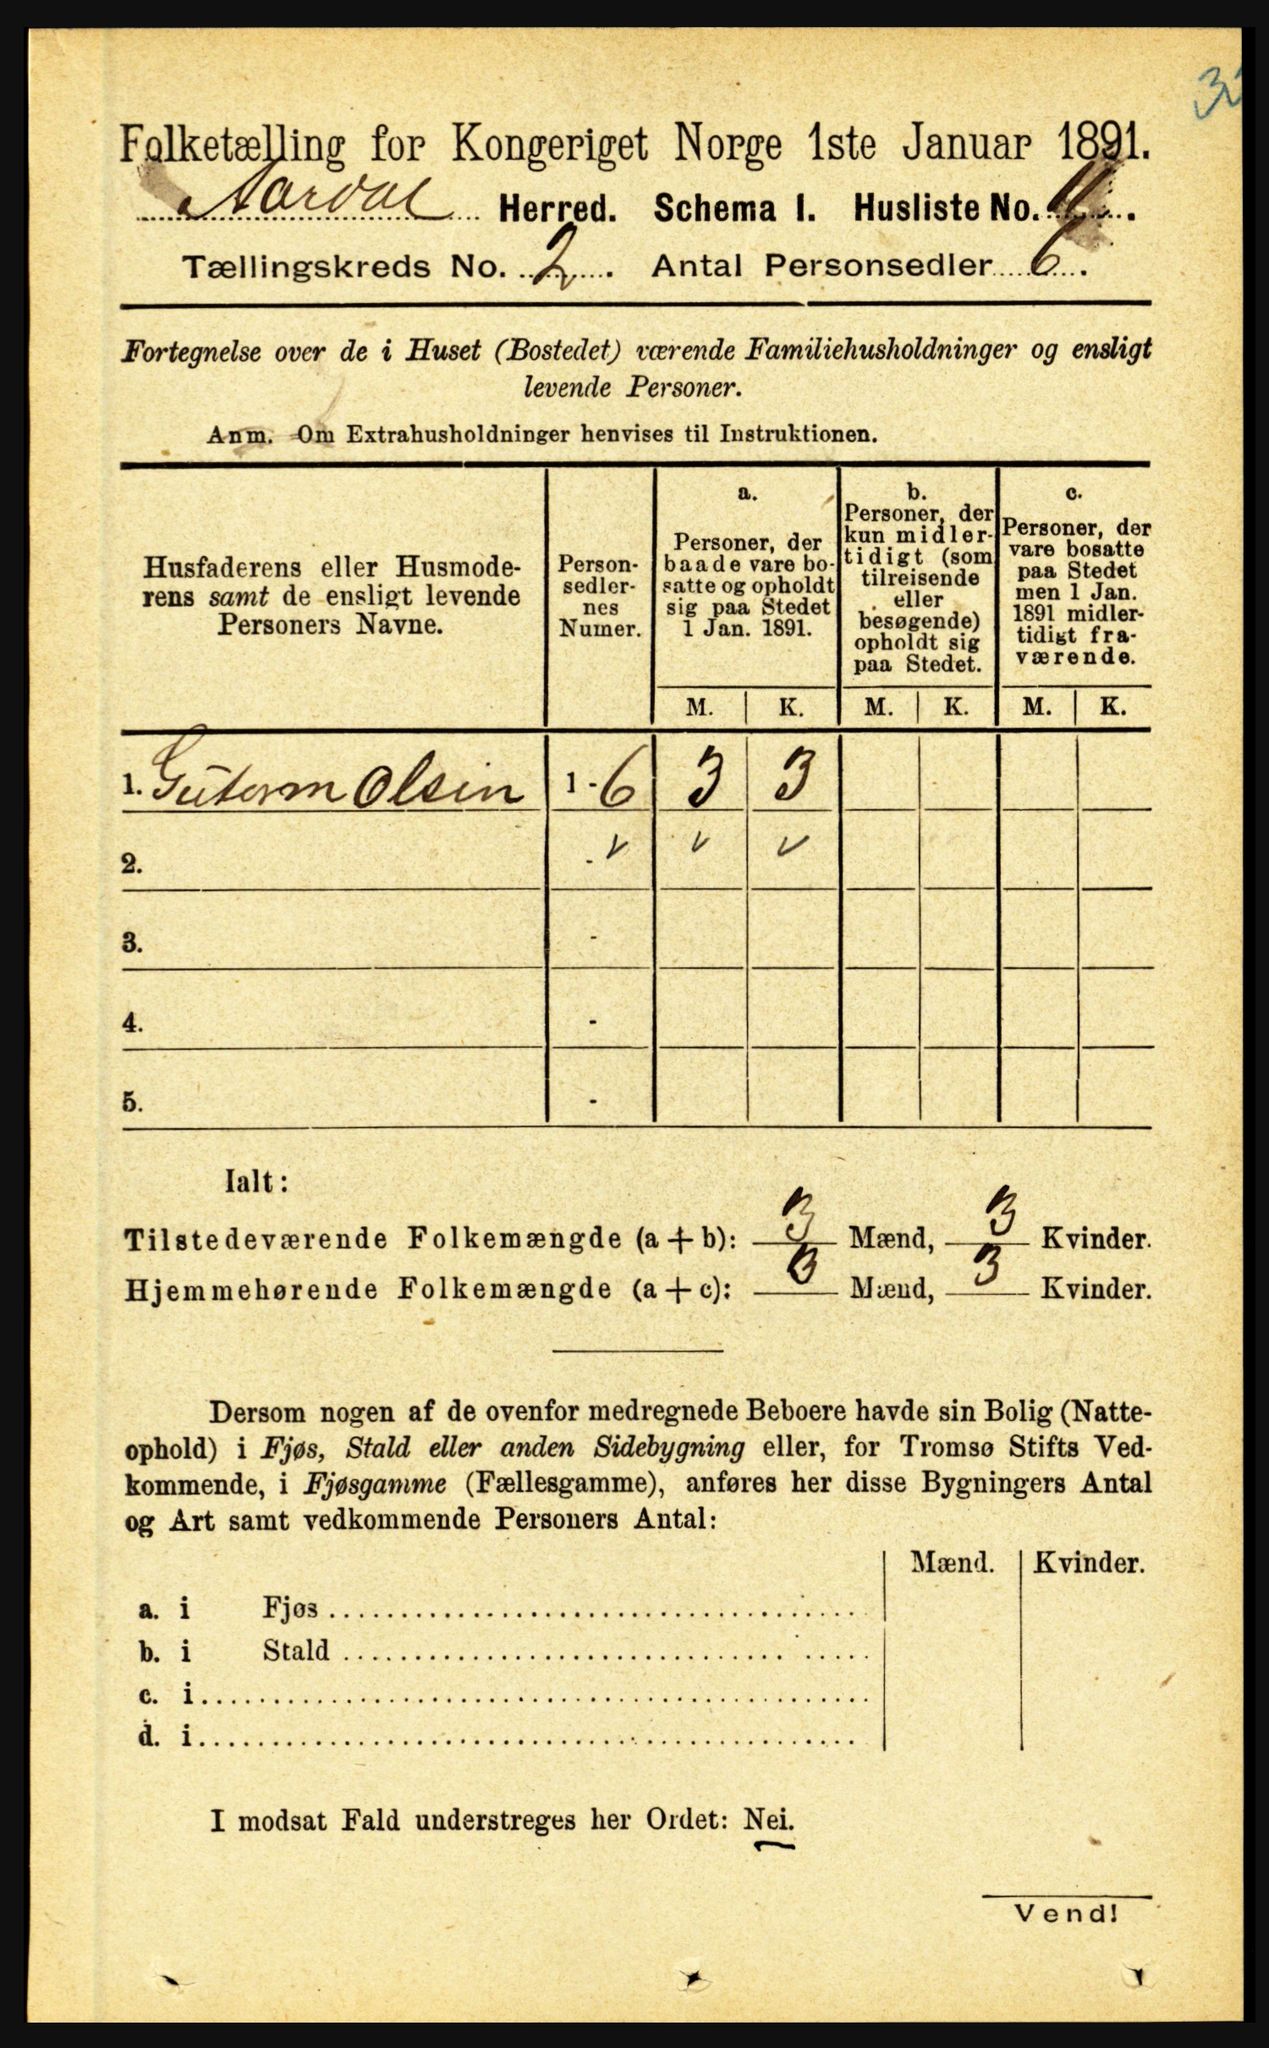 Folketælling for Kongeriget Norge 1ste Januar 1891.
Aardal Herred. Schema I. Husliste No. 11.
Tællingskreds No. 2. Antal Personsedler 6.
Fortegnelse over de i Huset (Bostedet) værende Familiehusholdninger og ensligt
levende Personer.
Anm. Om Extrahusholdninger henvises til Instruktionen.
Husfaderens eller Husmode-
rens samt de ensligt levende
Personers Navne.
Person-
sedler-
nes
Numer.
a.
Personer, der
baade vare bo-
satte og opholdt
sig paa Stedet
1 Jan. 1891.
b.
Personer, der
kun midler-
tidigt (som
tilreisende
eller
besøgende)
opholdt sig
paa Stedet.
c.
Personer, der
vare bosatte
paa Stedet
men 1 Jan.
1891 midler-
tidigt fra-
værende.
M. K. M. K. M. K.
1. Gutorm Olsen 1 - 6 3 3
2. - v v v
3. -
4. -
5. -
Ialt:
Tilstedeværende Folkemængde (a + b): 3 Mænd, 3 Kvinder.
Hjemmehørende Folkemængde (a + c): 3 Mænd, 3 Kvinder.
Dersom nogen af de ovenfor medregnede Beboere havde sin Bolig (Natte-
ophold) i Fjøs, Stald eller anden Sidebygning eller, for Tromsø Stifts Ved-
kommende, i Fjøsgamme (Fællesgamme), anføres her disse Bygningers Antal
og Art samt vedkommende Personers Antal:
Mænd. Kvinder.
a. i Fjøs
b. i Stald
c. i
d. i
I modsat Fald understreges her Ordet: Nei.
Vend!